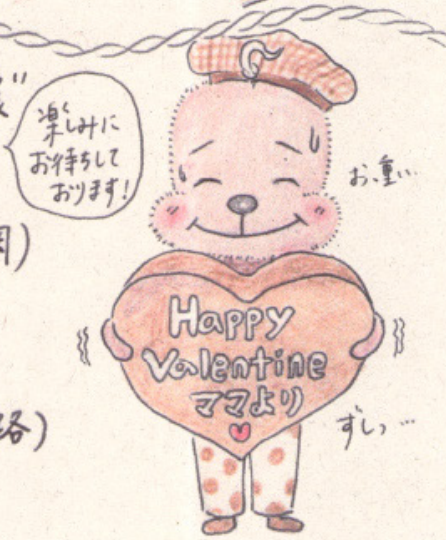 様
楽しみに
お待ちして
おります！
お、重…
Happy
Valentine
ママより
ずしっ…